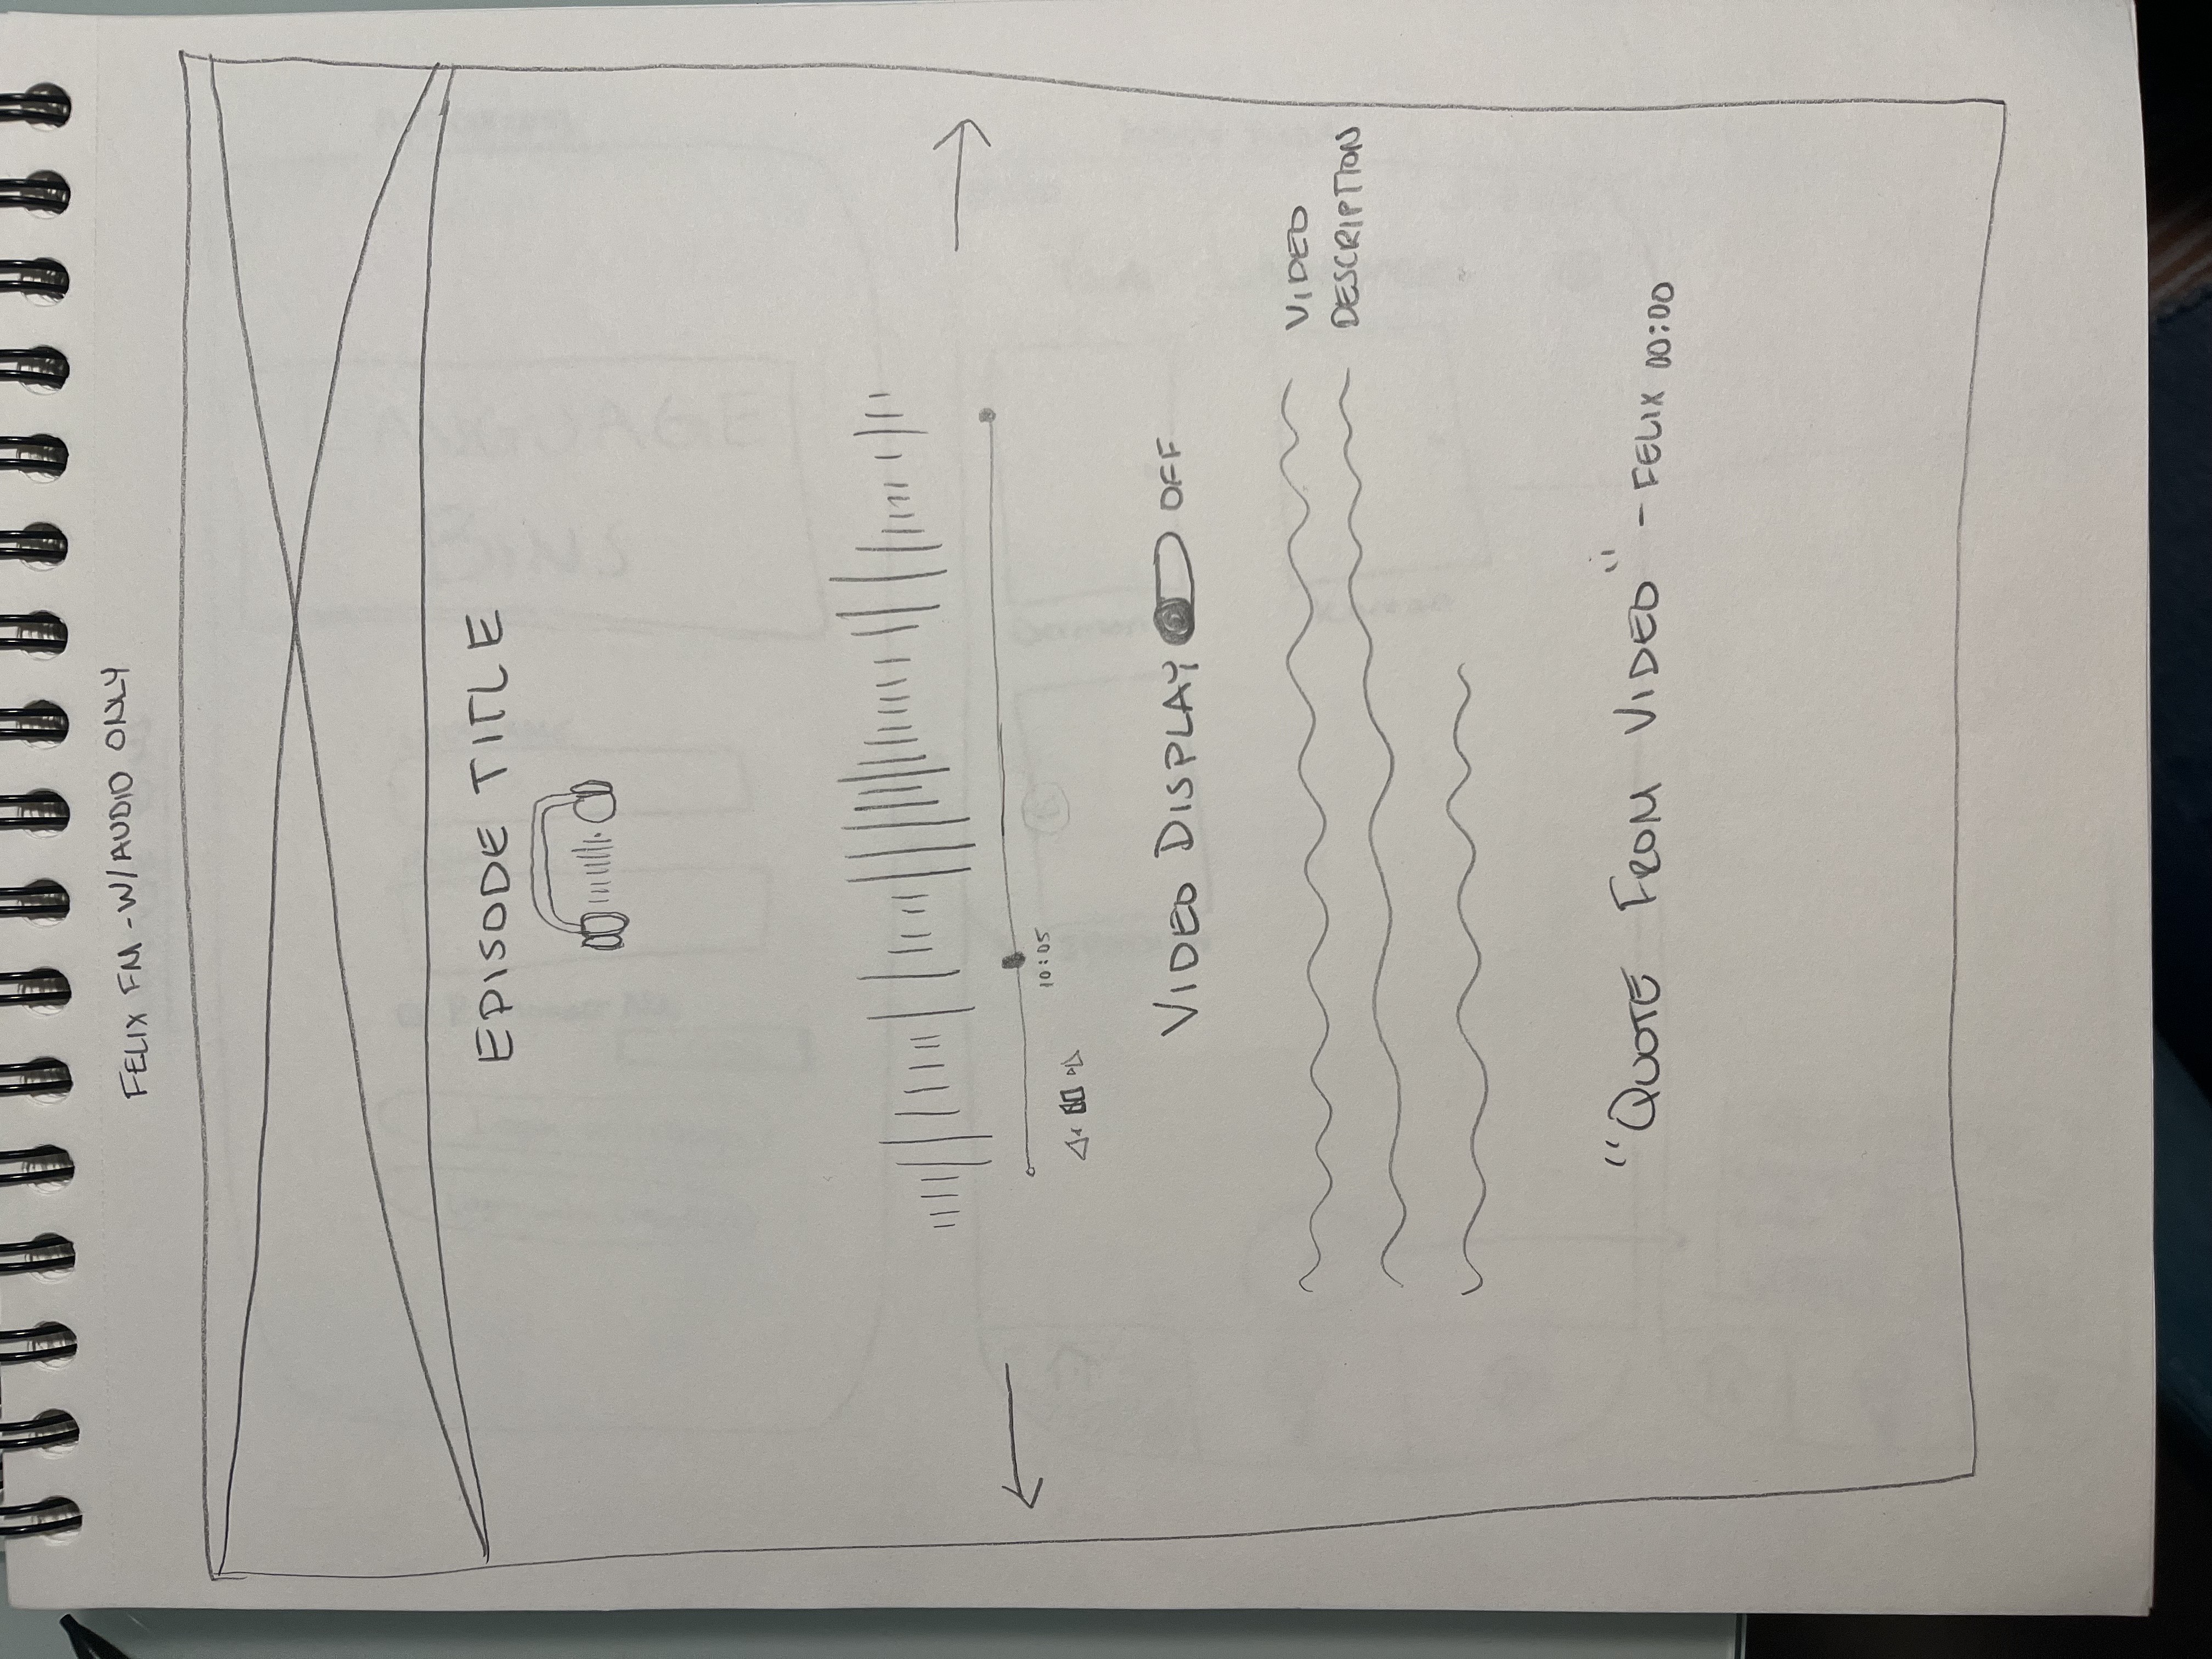 FELIX FM - W/AUDIO ONLY
EPISODE TITLE
10:05
VIDEO DISPLAY OFF
VIDEO
DESCRIPTION
"QUOTE FROM VIDEO" - FELIX 00:00